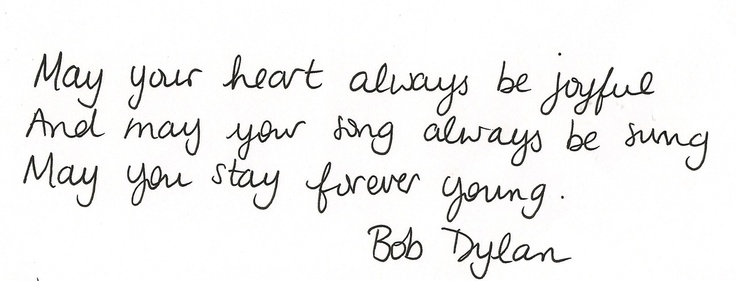 May your heart always be joyful
And may your song always be sung
May you stay forever young.
Bob Dylan